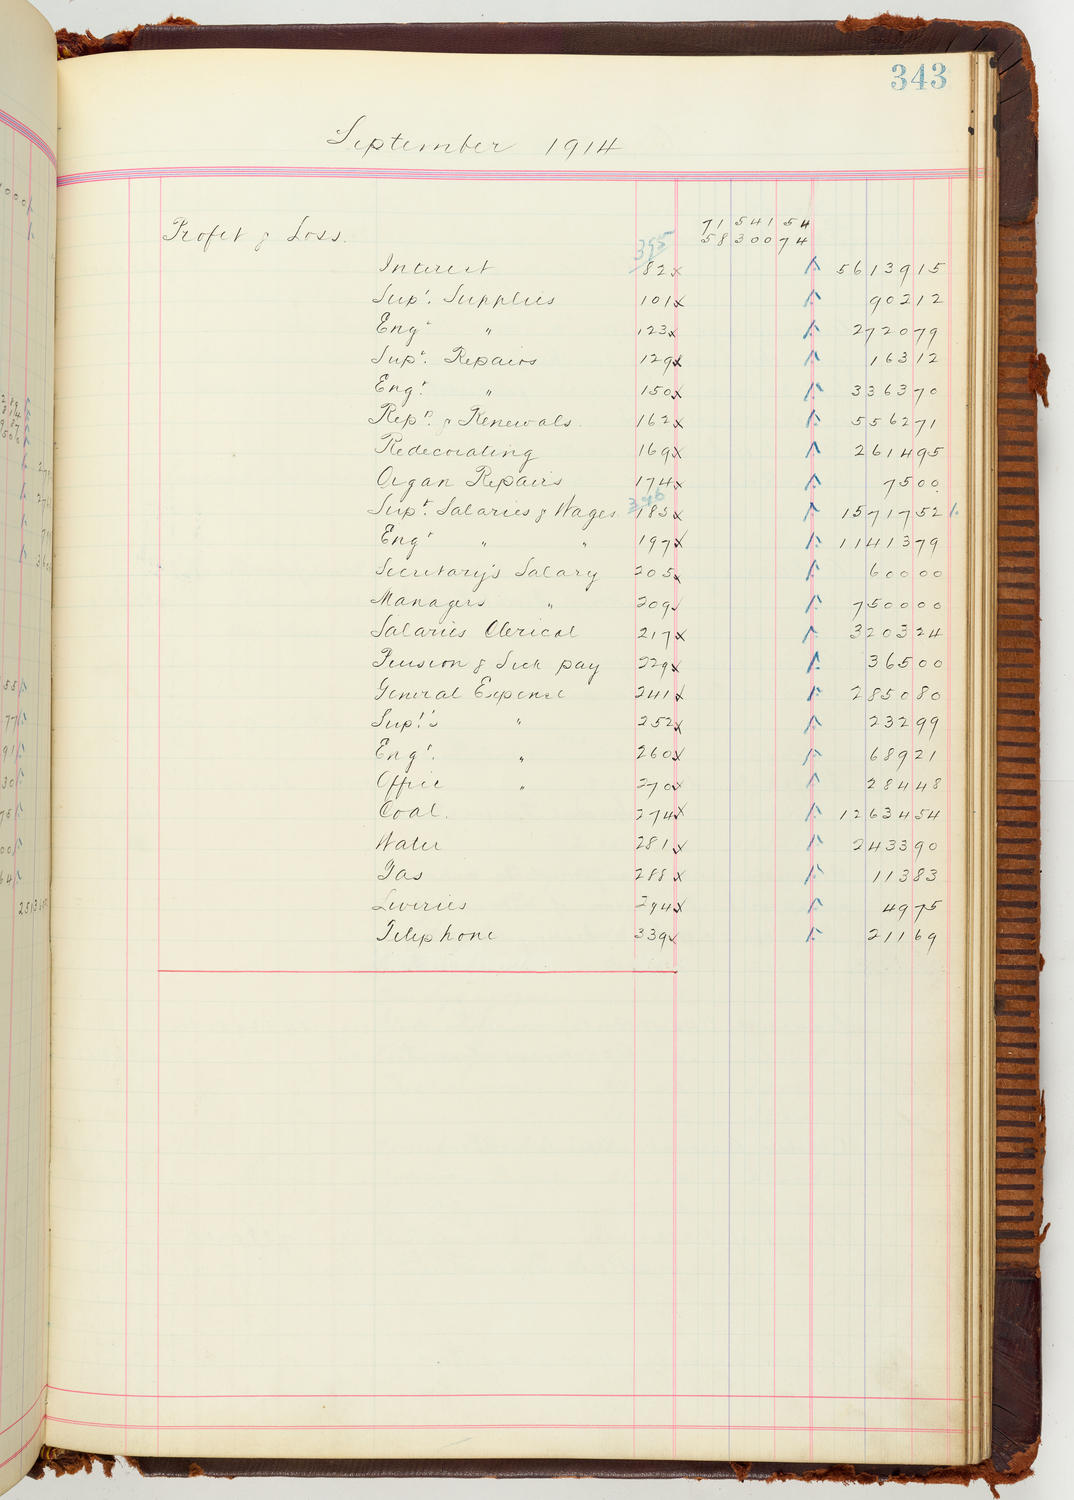 343
September 1914
71 541 54
Profit & Loss. 395 58 300 74
Interest 82x 56139 15
Supt. Supplies 101x 902 12
Engr " 123x 2720 79
Supt. Repairs 129x 163 12
Engr. " 150x 3363 70
Reprs. & Renewals. 162x 5562 71
Redecorating 169x 2614 95
Organ Repairs 174x 75 00
396
Supt. Salaries & Wages 185x 15717 52
Engr " " 197x 11413 79
Secretary's Salary 205x 600 00
Managers " 209x 7500 00
Salaries Clerical 217x 3203 24
Pension & Sick pay 229x 365 00
General Expense 241x 2850 80
Supt's " 252x 232 99
Engr. " 260x 689 21
Office " 270x 284 48
Coal. 274x 12634 54
Water 281x 2433 90
Gas 288x 113 83
Liveries 294x 49 75
Telephone 339x 211 69